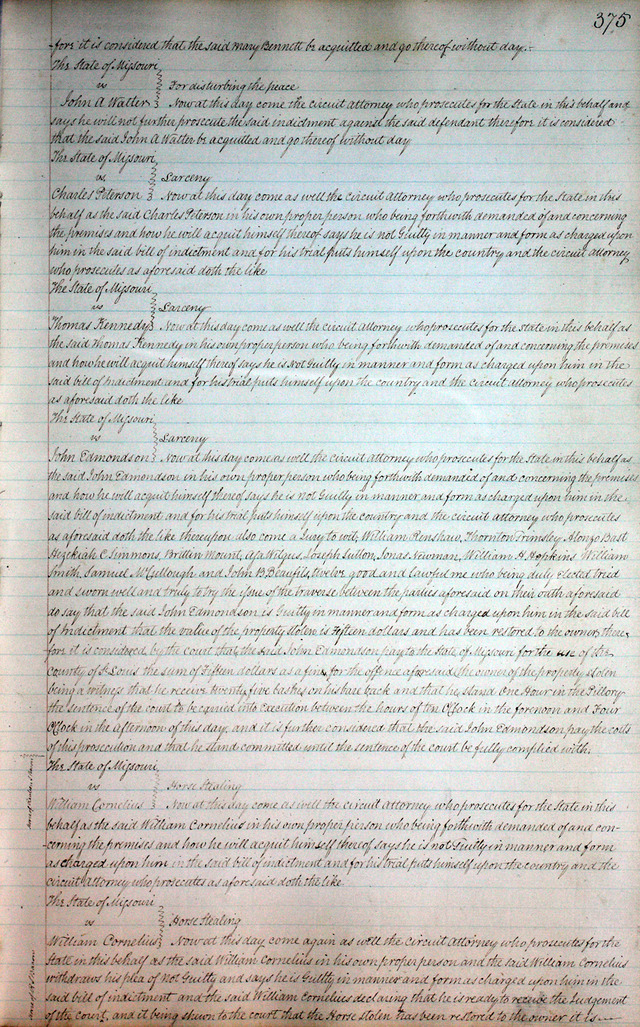 375
fore it is considered that the said Mary Bennett be acquitted and go thereof without day.
The State of Missouri
vs For disturbing the peace
John A Watter Now at this day come the circuit attorney who prosecutes for the State in this behalf and
says he will not further prosecute the said indictment against the said defendant therefore it is considered
that the said John A Watter be acquitted and go thereof without day
The State of Missouri,
vs Larceny
Charles Peterson Now at this day come as well the circuit attorney who prosecutes for the State in this
behalf as the said Charles Peterson in his own proper person who being forthwith demanded of and concerning
the premises and how he will acquit himself thereof says he is not Guilty in manner and form as charged upon
him in the said bill of indictment and for his trial puts himself upon the country and the circuit attorney
who prosecutes as aforesaid doth the like
The State of Missouri
vs Larceny
Thomas Kennedy Now at this day come as well the circuit attorney who prosecutes for the State in this behalf as
the said Thomas Kennedy in his own proper person who being forthwith demanded of and concerning the premises
and how he will acquit himself thereof says he is not Guilty in manner and form as charged upon him in the
said bill of indictment and for his trial puts himself upon the country and the circuit attorney who prosecutes
as aforesaid doth the like
The State of Missouri
vs Larceny
John Edmondson Now at this day come as well the circuit attorney who prosecutes for the State in this behalf as
the said John Edmondson in his own proper person who being forthwith demanded of and concerning the premises
and how he will acquit himself thereof says he is not Guilty in manner and form as charged upon him in the
said bill of indictment and for his trial puts himself upon the country and the circuit attorney who prosecutes
as aforesaid doth the like thereupon also come a Jury to wit, William Renshaw, Thornton Grimsley Alonzo Bast
Hezekiah C Simmons, Brittin Mount, Asa Wilgus, Joseph Sutton, Jonas Newman, William H Hopkins, William
Smith, Samuel McCullough and John B Beaufils, twelve good and lawful me who being duly elected tried
and sworn well and truly to try the issue of the traverse between the parties aforesaid on their oath aforesaid
do say that the said John Edmondson is Guilty in manner and form as charged upon him in the said bill
of Indictment that the value of the property stolen is Fifteen dollars and has been restored to the owner there
fore it is considered by the court that the said John Edmondson pay to the State of Missouri for the use of the
county of St Louis the sum of Fifteen dollars as a fine for the offence aforesaid, the owner of the property stolen
being a witness that he receive twenty five lashes on his bare back and that he stand One Hour in the Pillory
the sentence of the court to be carried into Execution between the hours of ten O'Clock in the forenoon and Four
O'Clock in the afternoon of this day, and it is further considered that the said John Edmondson pay the costs
of this prosecution and that he stand committed until the sentence of the court be fully complied with.
The State of Missouri
vs Horse Stealing
William Cornelius Now at this day come as well the circuit attorney who prosecutes for the State in this
behalf as the said William Cornelius in his own proper person who being forthwith demanded of and con-
cerning the premises and how he will acquit himself thereof says he is not Guilty in manner and form
as charged upon him in the said bill of indictment and for his trial puts himself upon the country and the
circuit Attorney who prosecutes as aforesaid doth the like
The State of Missouri
vs Horse Stealing
William Cornelius Now at this day come again as well the circuit attorney who prosecutes for the
State in this behalf as the said William Cornelius in his own proper person and the said William Cornelius
withdraws his plea of not Guilty and says he is Guilty in manner and form as charged upon him in the
said bill of indictment and the said William Cornelius declaring that he is ready to receive the Judgement
of the court, and it being shewn to the court that the Horse stolen has been restored to the owner it is